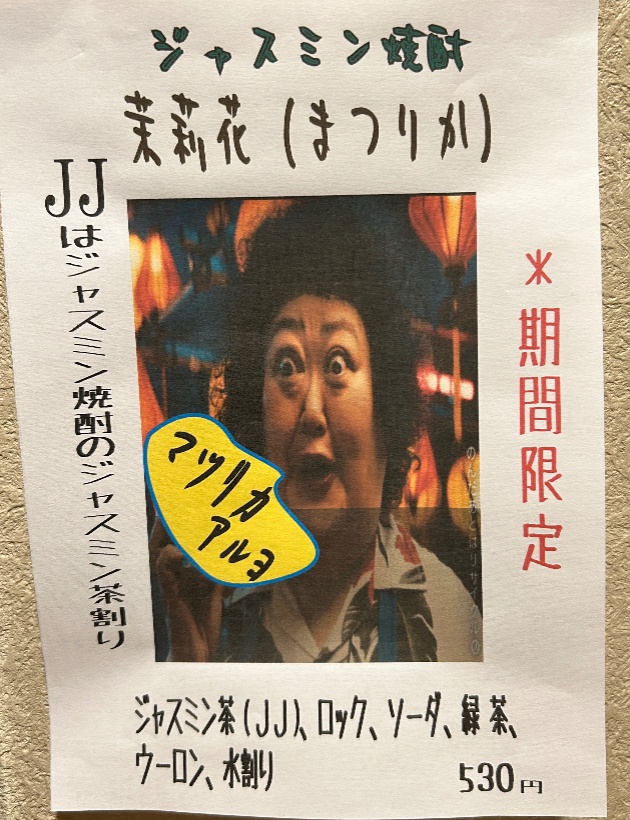 ジャスミン焼酎
茉莉花(まつりか)
JJはジャスミン焼酎のジャスミン茶割り
※期間限定
マツリカ
アルヨ
ジャスミン茶(JJ)、ロック、ソーダ、緑茶、
ウーロン、水割り
530円